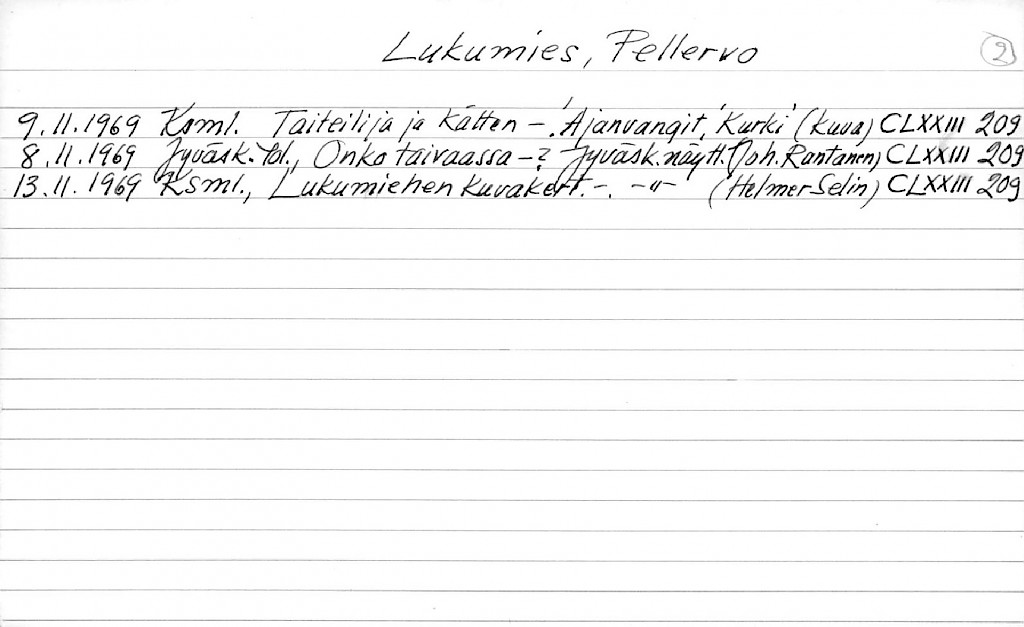 Lukumies, Pellervo 2
9.11.1969 Ksml. Taiteilija ja kätten -. 'Ajanvangit', 'Kurki' (kuva) CLXXIII 209
8.11.1969 Jyväsk. , Onko taivaassa -? Jyväsk. näytt. (Joh. Rantanen) CLXXIII 209
13.11.1969 Ksml., Lukumiehen kuvakert. -. -"- (Helmer Selin) CLXXIII 209